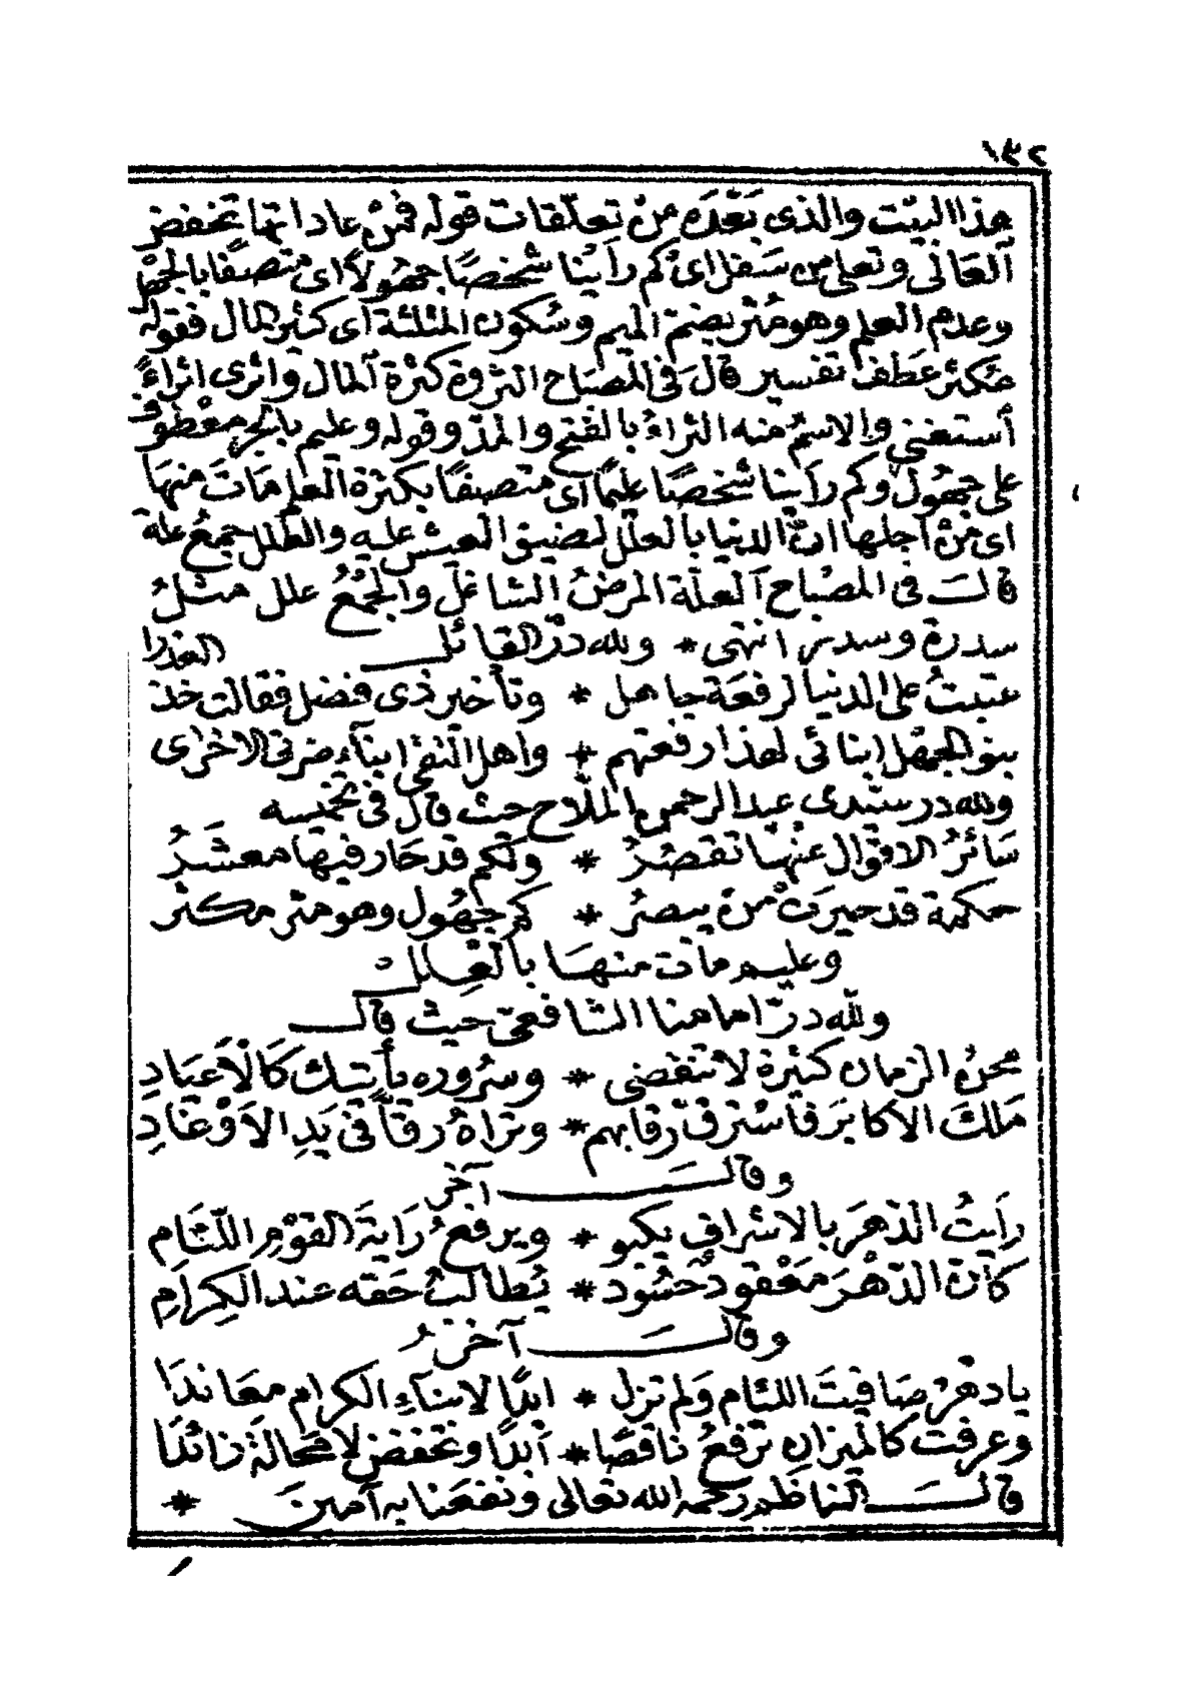 ١٣٢
هذا البيت والذى بَعْدَه مِنْ تعلّقات قوله فمِنْ عاداتها تخفض
العَالى وتعلى من سَفل اى كم رأينا شخصًا جهُولاً اى متصفا بالجهل
وعدم العلم وهو مُثْرٍ بضم الميم وسُكون المثلثة اى كثير المال فقوله
مُكثر عَطف تفسير قال فى المصباح الثروة كثرة المال واثرى اثراءً
أستغنى والاسمُ منه الثراءُ بالفتح والمدّ وقوله وعليم بالجر معْطوف
على جهُول وكم رأينا شخصًا عليمًا اى متصفًا بكثرة العلم مَاتَ منهَا
اى مِنْ اجلها اىْ الدنيا بالعلل لضيق العيش عليه والعلل جمعُ علة
قالَ فى المصْباح العلّة المرضُ الشاغل والجمْعُ علل مثلُ
سدرة وسدر انتهى * ولله درّ القائل
عتبتُ على الدنيا لرفعَة جاهل * وتأخير ذى فضل فقالت خذ العذرا
بنو الجهْل ابنائى لهذا رفعتهم * واهل التقى ابناء ضرتى الاخرى
ولله در سيّدى عبد الرحمن الملّاح حيث قال فى تخميسه
سَائرُ الاقوال عنْهَا تقصُرُ * ولكم قد حَار فيها معشَرُ
حكمة قد حيرَتْ منْ يبصرُ * كم جهُول وهو مثر مكثر
وعليم مات منهَا بالعِلل
ولله درّ امامنا الشافعىّ حيث قال
مِحَنُ الزمان كثيرة لا تنقضى * وسرُوره يأتيك كَالأعيَادِ
مَلكَ الأكابرَ فاسْترق رقابهم * وتراهُ رقّاً فى يَدِ الأوْغَادِ
وقالَ آخر
رأيتُ الدّهرَ بالاشراف يكبو * ويرفعُ رَايةَ القوْمِ اللّئَامِ
كأن الدّهْرَ مَعْقود حَسُود * يُطالبُ حَقه عند الكِرامِ
وقالَ آخرُ
يا دهْرُ صَافيتَ اللئام وَلم تزل * ابدًا لابناءِ الكرام معَاندَا
وعرفت كالميزان ترفعُ ناقصًا * أبدًا وتخفض لا محالَةَ زائدَا
قالَ الناظم رحمه الله تعالى ونفعَنا به آمين *